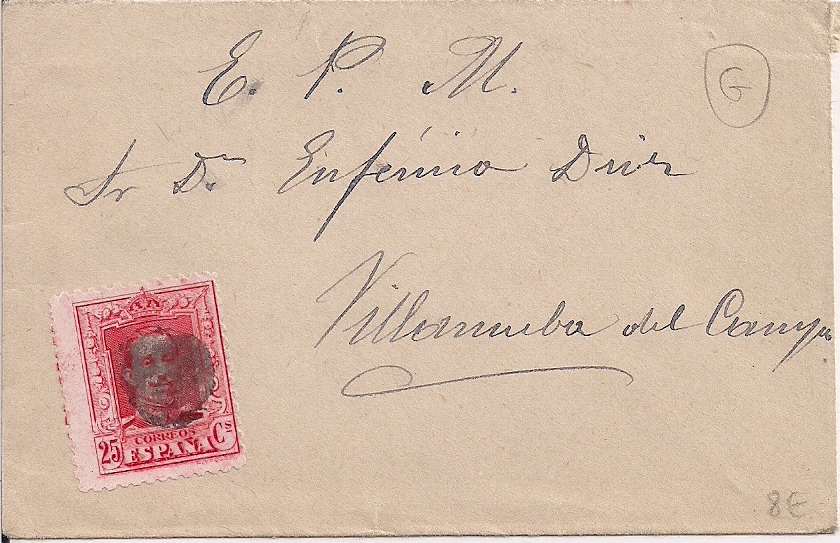 E. P. M.
G
Sr Dn Eufémio Diez
Villanueba del Campo
25 Cs
CORREOS
ESPAÑA
8€